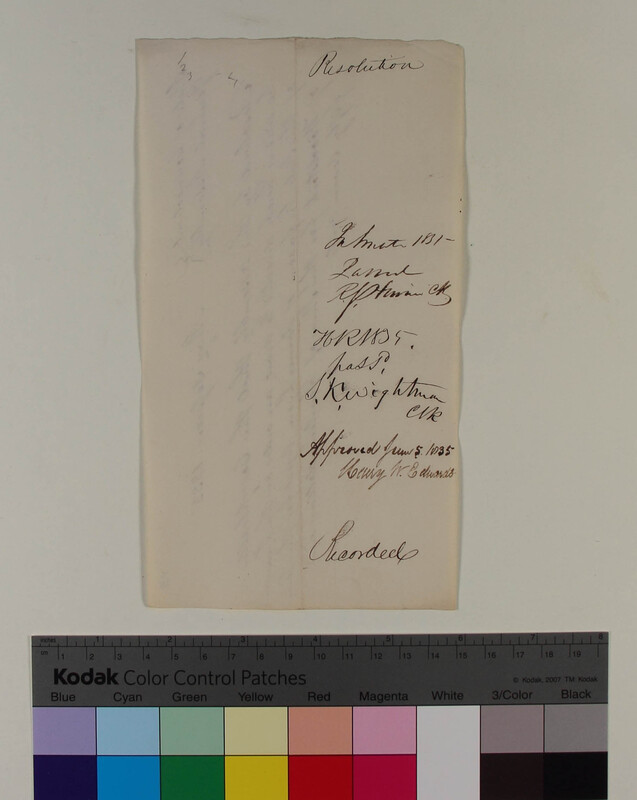 Resolution
In Senate 1835
Passed
HR 1835.
passd.
S. K. Wightman
Clk
Approved June 5. 1835
Henry W. Edwards
Recorded
Kodak Color Control Patches
© Kodak, 2007 TM: Kodak
Blue Cyan Green Yellow Red Magenta White 3/Color Black
inches 1 2 3 4 5 6 7 8
cm 1 2 3 4 5 6 7 8 9 10 11 12 13 14 15 16 17 18 19